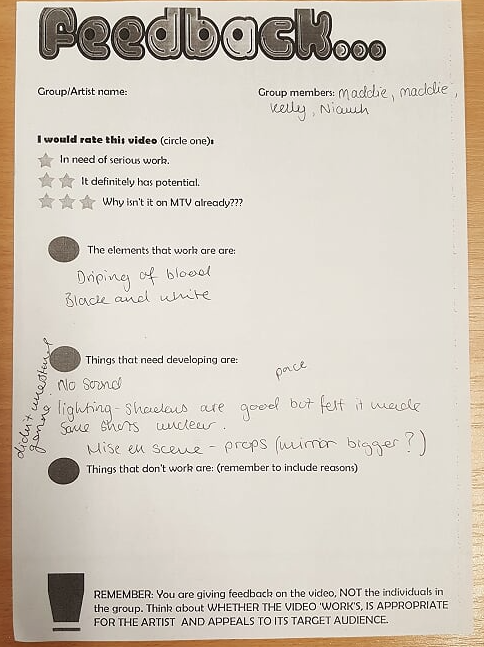 Feedback...
Group/Artist name:
Group members: maddie, maddie,
Kelly, Niamh
I would rate this video (circle one):
In need of serious work.
It definitely has potential.
Why isn't it on MTV already???
The elements that work are are:
Driping of blood
Black and white
Things that need developing are:
pace
No sound
lighting - shadows are good but felt it made
some shots unclear.
Mise en scene - props (mirror bigger?)
didn't understand
genre
Things that don't work are: (remember to include reasons)
REMEMBER: You are giving feedback on the video, NOT the individuals in
the group. Think about WHETHER THE VIDEO 'WORK'S, IS APPROPRIATE
FOR THE ARTIST AND APPEALS TO ITS TARGET AUDIENCE.